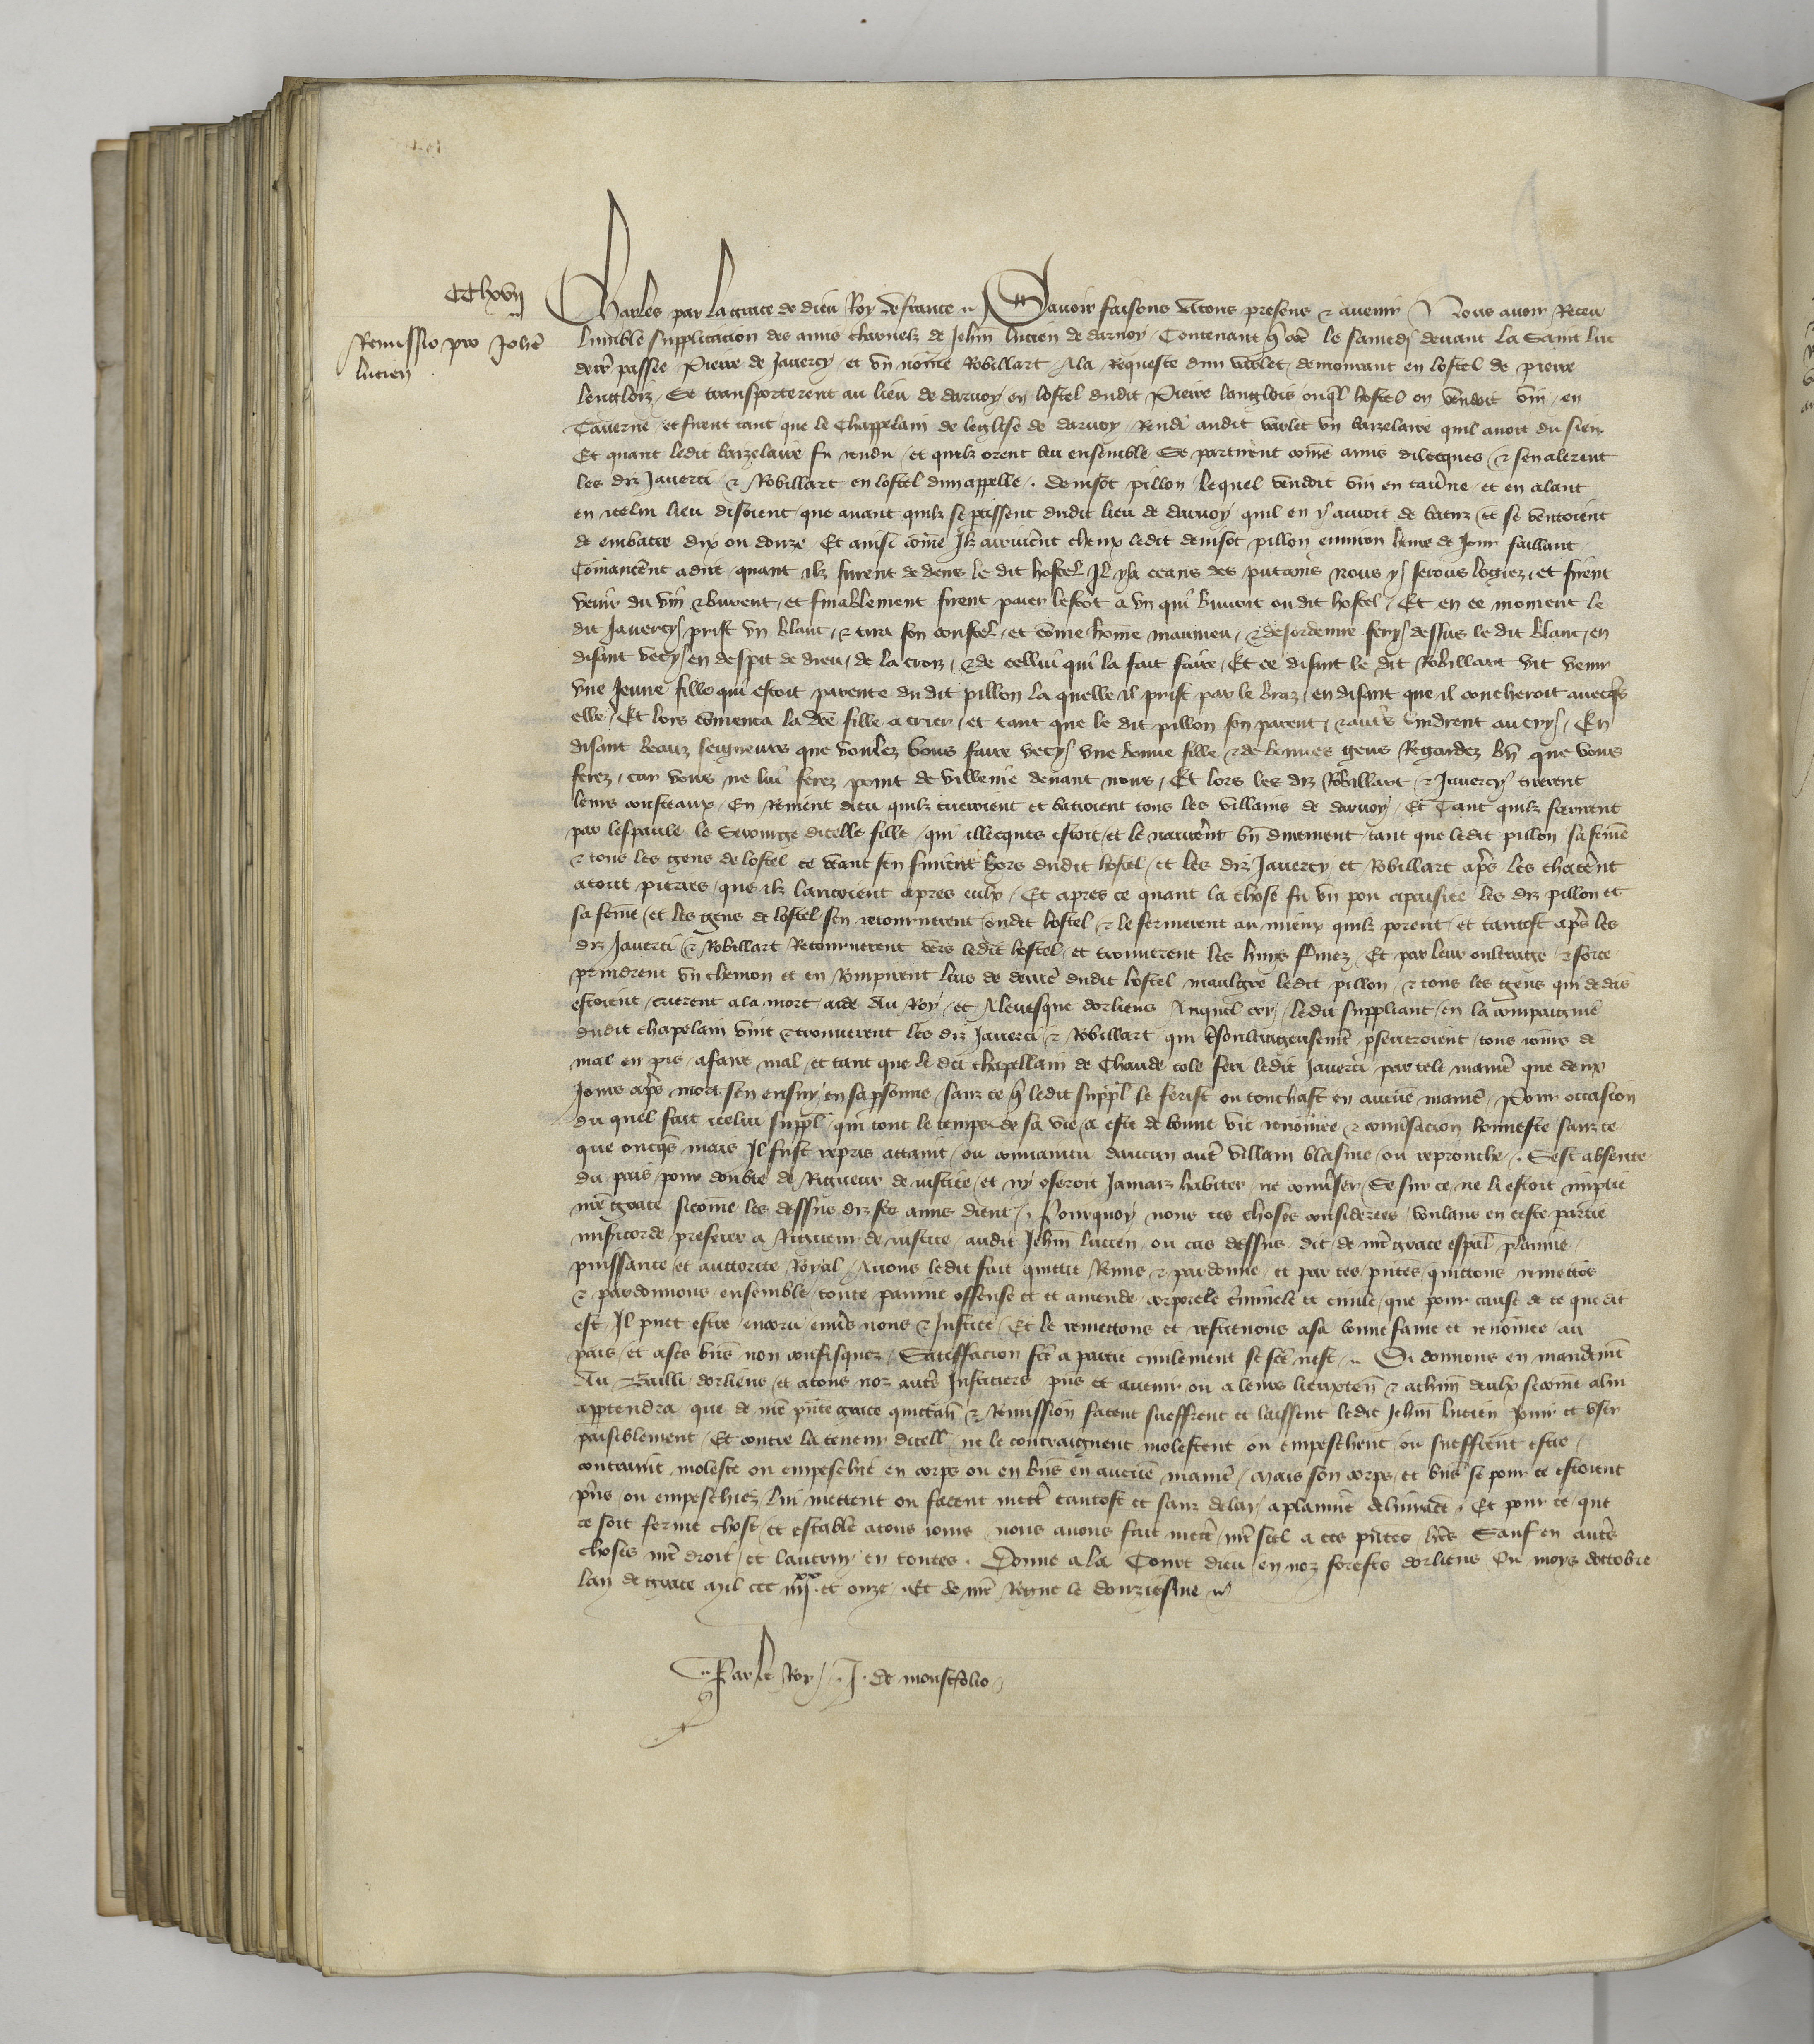 CClxvij
Remissio pro Johe
lucien
Charles par la grace de dieu Roy de france Savoir faisons a tous presens & avenir Nous avoir Receu
lumble supplicacion des amis charnelz de Jehan lucien de darvoy Contenant que le samedi devant la Saint luc
derr passee Pierre de Javercy et un nomme Robillart A la Requeste dun varlet demourant en lostel de pierre
lenglois Se transporterent au lieu de darvoy en lostel dudit Pierre langlois ouql hostel on vendoit vin en
Taverne et firent tant que le Chappelain de leglise de darvoy Rendi audit varlet un bazelaire quil avoit du sien
Et quant ledit bazelaire fu rendu et quilz orent beu ensemble Se partirent comme amis dilecques & sen alerent
les diz Javerci & Robillart en lostel dun appelle denisot pillon lequel vendoit vin en taverne et en alant
en icelui lieu disoient que avant quilz se ptissent dudit lieu de darvoy quil en y auroit de batuz et se ventoient
de embatre dix ou douze Et ainsi comme Ilz arriverent cheux ledit denisot pillon environ leure de Jour faillant
Comancerent a dire quant ilz furent dedens le dit hostel Il y a ceans des putains nous y serons logiez et firent
venir du vin & burent et finablement firent paier lescot a un qui buvoit ou dit hostel Et en ce moment le
dit Javercy prist un blanc & tira son coustel et comme homme mauveu & desordenne fery dessus le dit blanc en
disant vecy en despit de dieu de la croiz & de cellui qui la fait faire Et ce disant le dit Robillart vit venir
une Jeune fille qui estoit parente du dit pillon la quelle il prist par le braz en disant que il coucheroit avecqs
elle Et lors commenca la dce fille a crier et tant que le dit pillon son parent & autres vindrent au cry En
disant beaux seigneurs que voulez vous faire vecy une bonne fille & de bonnes gens Regardez bn que vous
ferez car vous ne lui ferez point de villenie devant nous Et lors les diz Robillart & Javercy tirerent
leurs cousteaux En reniant dieu quilz tueroient et batroient tous les villains de darvoy Et Tant quilz ferirent
par lespaule le Serourge dicelle fille qui illecques estoit et le navrerent bn durement tant que ledit pillon sa femme
& tous les gens de lostel ce veant sen fuirent hors dudit hostel et les diz Javercy et Robillart aprs les chacerent
atout pierres que ilz lancoient apres eulx Et apres ce quant la chose fu un pou apaisiee les diz pillon et
sa femme et les gens de lostel sen retournerent oudit hostel & le fermerent au mieux quilz porent et tantost aprs les
diz Javerci & Robillart Retournerent vers ledit hostel et trouverent les huis fermez Et par leur oultrage & force
prindrent un chevron et en Rompirent luis de derrier dudit hostel maulgre ledit pillon & tous les gens qui dedens
estoient crierent a la mort aide Au Roy et A levesque dorliens Auquel cry ledit suppliant en la compaignie
dudit chapelain vint & trouverent les diz Javerci & Robillart qui tresoultrageusement pseveroient tous jours de
mal en pis a faire mal et tant que le dit chapellain de Chaude cole feri ledit Javerci par tele maniere que deux
Jours aprs mort sen ensuy en sa psonne sanz ce que ledit suppl le ferist ou touchast en aucune maniere Pour occasion
du quel fait icelui suppl qui tout le temps de sa vie a este de bonne vie renommee & conversacion honneste sanz ce
que oncqs mais Il fust repris attaint ou convaincu daucun autre villain blasme ou reprouche Sest absente
du pais pour doubte de Rigueur de justice et ny oseroit Jamaiz habiter ne converser Se sur ce ne li estoit impartie
nre grace sicomme les dessus diz ses amis dient Pourquoy nous ces choses considerees voulans en ceste partie
misericorde preferer a Rigueur de justice audit Jehan lucien ou cas dessus dit de nre grace espal plainne
puissance et auctorite Royal Avons ledit fait quittie Remis & pardonne et par ces pntes quittons remettons
& pardonnons ensemble toute painne offense et amende corporele criminele et civile que pour cause de ce que dit
est Il puet estre encouru envers nous & Justice Et le remettons et restituons a sa bonne fame et renommee au
pais et a ses biens non confisquez Satiffacion fce a partie civilement se fce nest Si donnons en mandemt
Au Bailli dorliens et a tous noz autres Justiciers pns et avenir ou a leurs lieuxten & a chun deulx si comme a lui
apptendra que de nre pnte grace quictance & Remission facent sueffrent et laissent ledit Jehan lucien Jouir et user
paisiblement Et contre la teneur dicelle ne le contraignent molestent ou empeschent ou sueffrent estre
contraint moleste ou empeschie en corps ou en biens en aucune maniere mais son corps et biens se pour ce estoient
pris ou empeschiez lui mettent ou facent mettre tantost et sanz delay a plainne delivrance Et pour ce que
ce soit ferme chose et estable a tous jours nous avons fait mettre nre scel a ces pntes lres Sauf en autres
choses nre droit et lautruy en toutes Donne a la Court dieu en noz forests dorliens Ou moys doctobre
lan de grace mil ccc iiijxx et onze Et de nre Regne le douziesme
Par le Roy J. de monsfolio